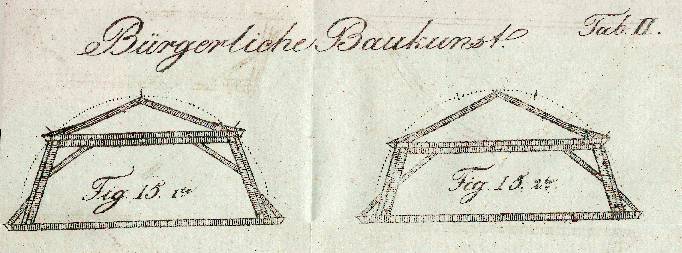 Bürgerliche Baukunst.
Tab. II.
Fig. 15. 1te
Fig. 15. 2te